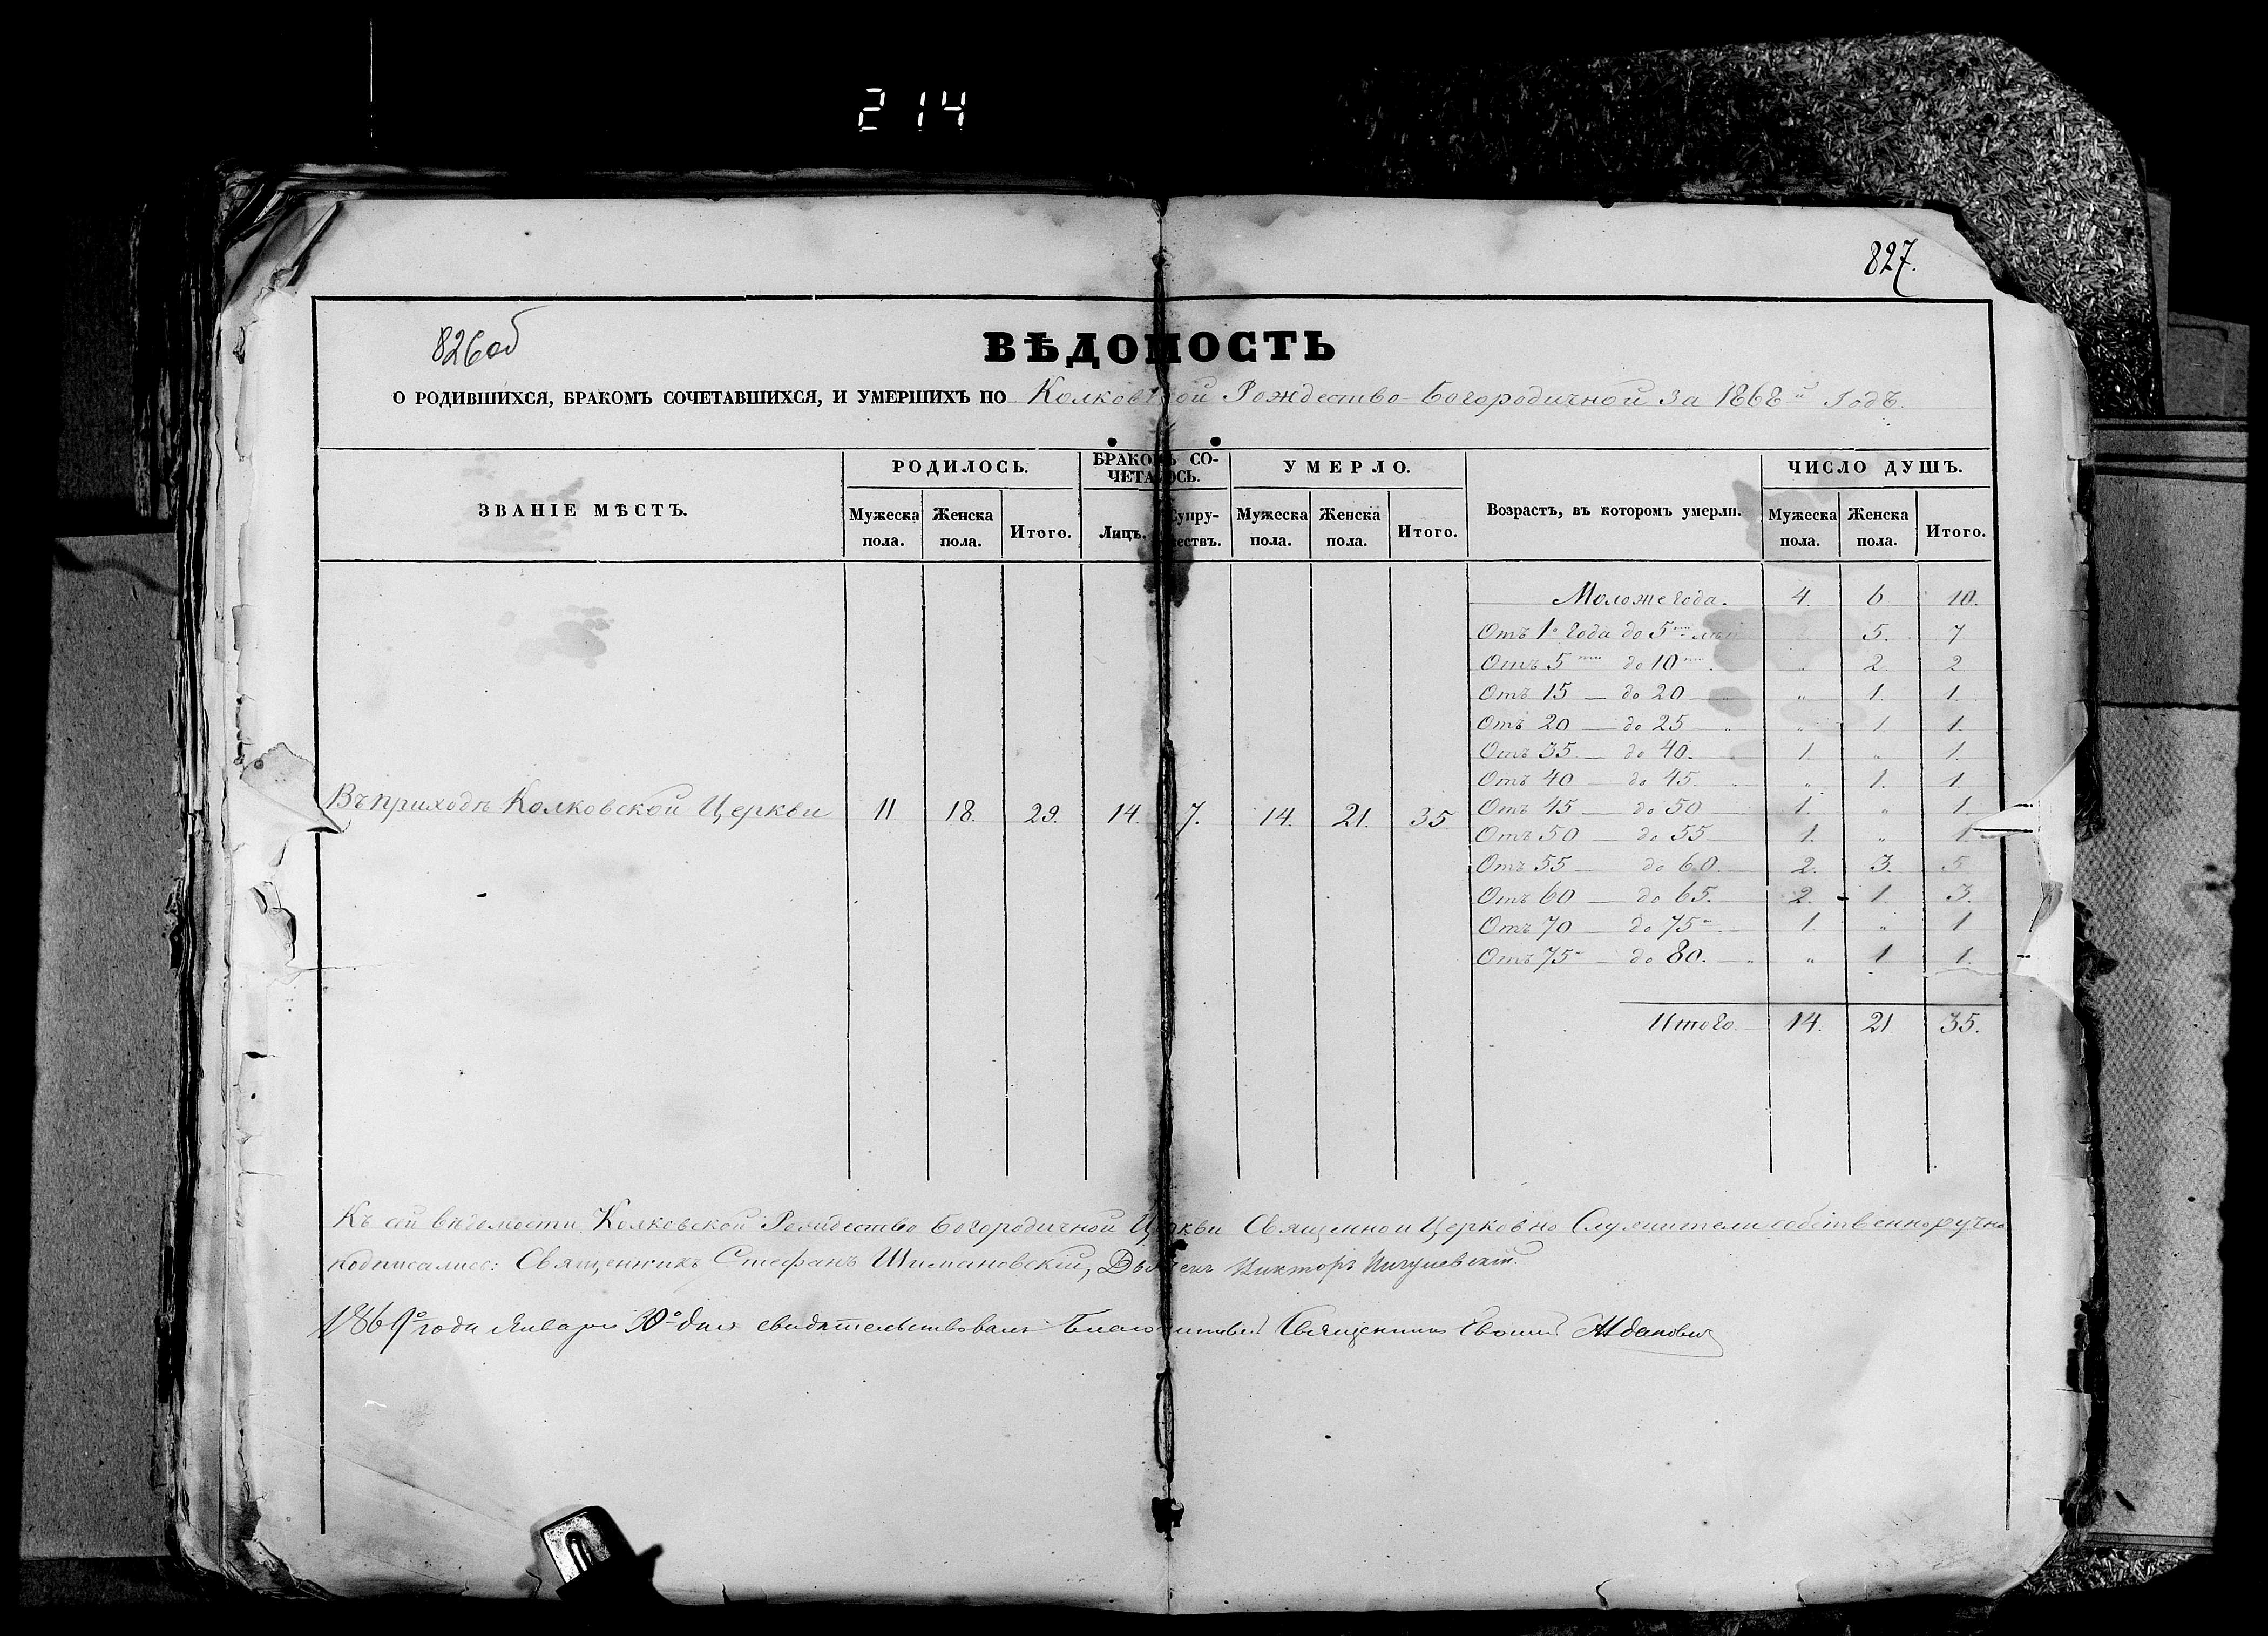 214
827.
826об
ВѢДОМОСТЬ
О РОДИВШИХСЯ, БРАКОМЪ СОЧЕТАВШИХСЯ, И УМЕРШИХЪ ПО Колковской Рождество-Богородичной за 1868й Годъ.
ЗВАНІЕ МѢСТЪ. РОДИЛОСЬ. БРАКОМЪ СО- УМЕРЛО. Возрастъ, въ которомъ умерли. ЧИСЛО ДУШЪ.
ЧЕТАЛОСЬ.
Мужеска Женска Итого. Лицъ. Супру- Мужеска Женска Итого. Мужеска Женска Итого.
пола. пола. жествъ. пола. пола. пола. пола.
Моложе года. 4. 6 10.
Отъ 1о года до 5ти лѣтъ 5. 7
Отъ 5ти до 10ти „ 2. 2
Отъ 15 — до 20 „ 1. 1.
Отъ 20 — до 25 „ „ 1 1.
Отъ 35 — до 40. 1. „ 1.
Отъ 40 — до 45. „ „ 1. 1
Въ приходѣ Колковской Церкви 11 18. 29. 14. 7. 14. 21. 35 Отъ 45 — до 50 1. „ 1.
Отъ 50 — до 55 1. „ 1.
Отъ 55 — до 60. 2. 3. 5.
Отъ 60 — до 65. 2. 1. 3.
Отъ 70 — до 75 — 1. „ 1
Отъ 75 — до 80. — „ „ 1 1.
Итого. 14. 21 35.
Къ сей вѣдомости Колковской Рождество Богородичной Церкви Священно и Церковно Служители собственноручно
подписались: Священникъ Стефанъ Шимановскій, Викторъ
1869о года Января 30о дня свидѣтельствовалъ Благочинный Священникъ Жданович